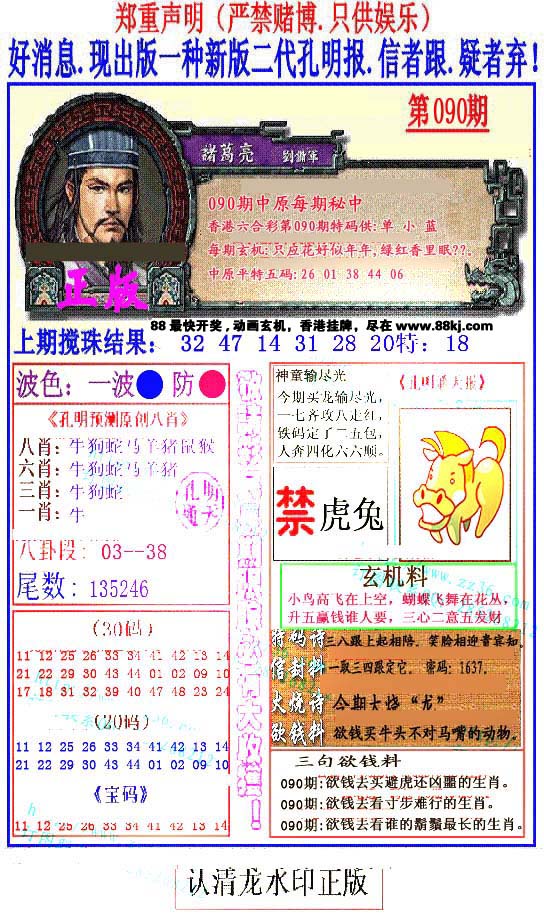 郑重声明（严禁赌博.只供娱乐）
好消息.现出版一种新版二代孔明报.信者跟.疑者弃!
第090期
諸葛亮 劉備軍
090期中原每期秘中
香港六合彩第090期特码供: 单 小 蓝
每期玄机: 只应花好似年年,绿红香里眠??。
中原平特五码: 26 01 38 44 06
正版
88 最快开奖，动画玄机，香港挂牌，尽在 www.88kj.com
上期搅珠结果： 32 47 14 31 28 20特：18
波色：一波 防
《孔明预测原创八肖》
八肖: 牛狗蛇马羊猪鼠猴
六肖: 牛狗蛇马羊猪
三肖: 牛狗蛇
一肖: 牛
八卦段：03--38
尾数：135246
(30码)
11 12 25 26 33 34 41 42 13 14
21 22 29 30 43 44 01 02 09 10
17 18 31 32 39 40 47 48 23 24
(20码)
11 12 25 26 33 34 41 42 13 14
21 22 29 30 43 44 01 02 09 10
《宝码》
11 12 25 26 33 34 41 42 13 14
神童输尽光
今期买龙输尽光，
一七齐攻八走红，
铁码定了二五包，
人奔四化六六顺。
禁 虎兔
玄机料
小鸟高飞在上空，蝴蝶飞舞在花丛，
升五赢钱谁人要，三心二意五发财
特码诗 三八跟上起相陪，笑脸相迎看宾知。
信封料 一取三四跟定它。 密码: 1637.
火烧诗 今期火烧“龙”
欲钱料 欲钱买牛头不对马嘴的动物。
三句欲钱料
090期:欲钱去买避虎还凶噩的生肖。
090期:欲钱去看寸步难行的生肖。
090期:欲钱去看谁的鬍鬚最长的生肖。
认清龙水印正版